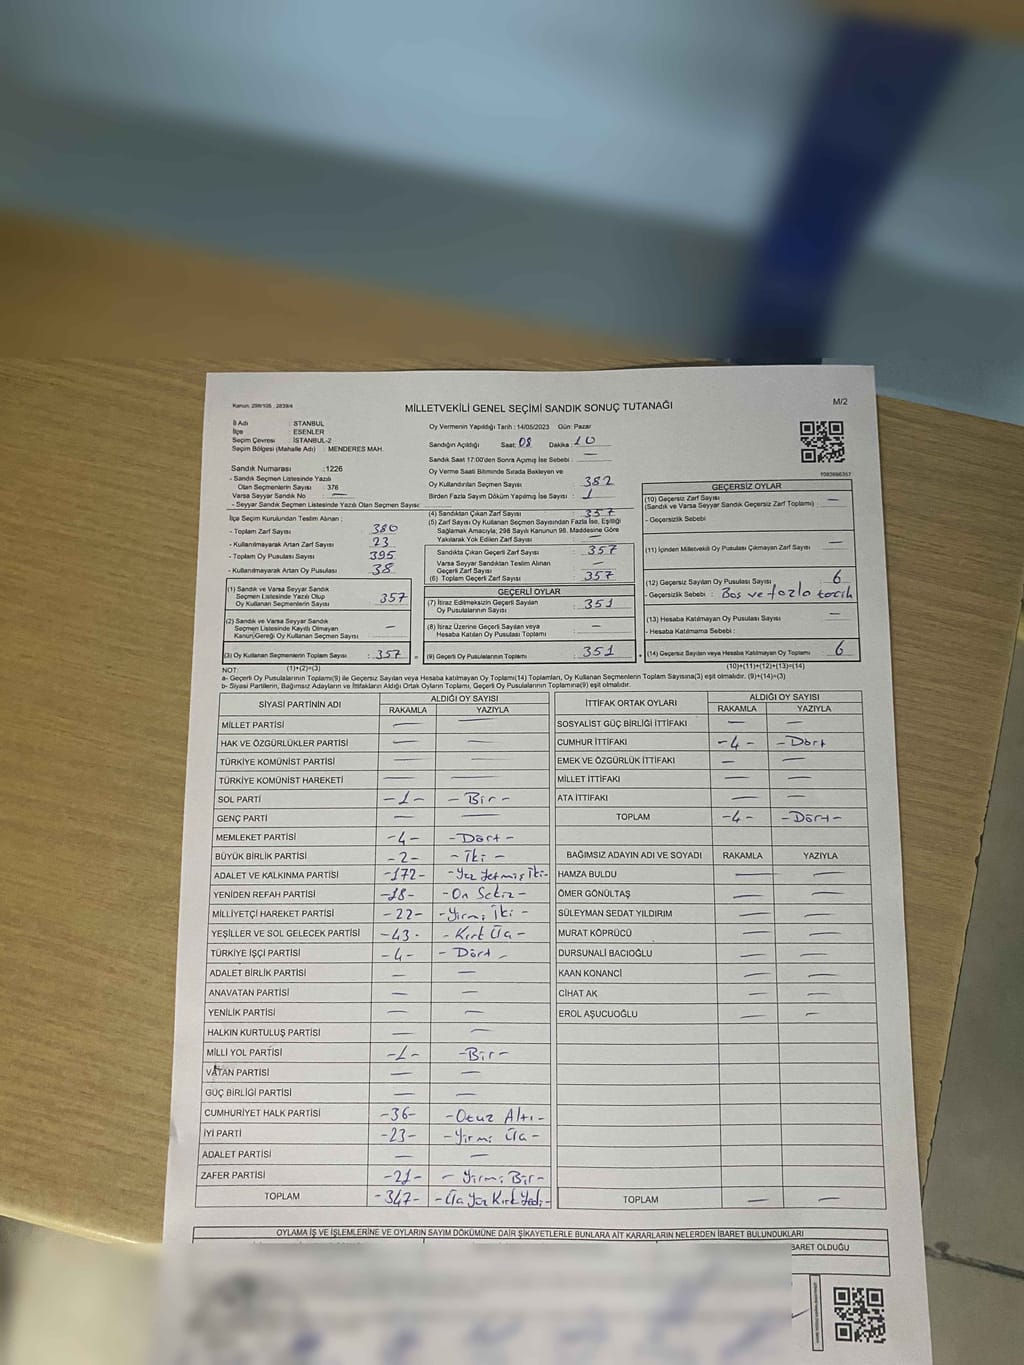 Kanun: 298/105 , 2839/4
MİLLETVEKİLİ GENEL SEÇİMİ SANDIK SONUÇ TUTANAĞI
M/2
İl Adı : İSTANBUL
İlçe : ESENLER
Seçim Çevresi : İSTANBUL-2
Seçim Bölgesi (Mahalle Adı) : MENDERES MAH.
Oy Vermenin Yapıldığı Tarih : 14/05/2023 Gün: Pazar
Sandığın Açıldığı Saat: 08 Dakika : 10
Sandık Saat 17:00'den Sonra Açılmış İse Sebebi : —
Oy Verme Saati Bitiminde Sırada Bekleyen ve
Oy Kullandırılan Seçmen Sayısı : 382
Birden Fazla Sayım Döküm Yapılmış İse Sayısı : 1
Sandık Numarası :1226
- Sandık Seçmen Listesinde Yazılı
Olan Seçmenlerin Sayısı : 376
Varsa Seyyar Sandık No : —
- Seyyar Sandık Seçmen Listesinde Yazılı Olan Seçmen Sayısı:
İlçe Seçim Kurulundan Teslim Alınan ;
- Toplam Zarf Sayısı : 380
- Kullanılmayarak Artan Zarf Sayısı : 23
- Toplam Oy Pusulası Sayısı : 395
- Kullanılmayarak Artan Oy Pusulası : 38
(1) Sandık ve Varsa Seyyar Sandık
Seçmen Listesinde Yazılı Olup
Oy Kullanan Seçmenlerin Sayısı : 357
(2) Sandık ve Varsa Seyyar Sandık
Seçmen Listesinde Kayıtlı Olmayan
Kanun Gereği Oy Kullanan Seçmen Sayısı : —
(3) Oy Kullanan Seçmenlerin Toplam Sayısı : 357
(1)+(2)=(3)
(4) Sandıktan Çıkan Zarf Sayısı : 357
(5) Zarf Sayısı Oy Kullanan Seçmen Sayısından Fazla İse, Eşitliği
Sağlamak Amacıyla; 298 Sayılı Kanunun 98. Maddesine Göre
Yakılarak Yok Edilen Zarf Sayısı : —
Sandıkta Çıkan Geçerli Zarf Sayısı : 357
Varsa Seyyar Sandıktan Teslim Alınan
Geçerli Zarf Sayısı : —
(6) Toplam Geçerli Zarf Sayısı : 357
GEÇERLİ OYLAR
(7) İtiraz Edilmeksizin Geçerli Sayılan
Oy Pusulalarının Sayısı : 351
(8) İtiraz Üzerine Geçerli Sayılan veya
Hesaba Katılan Oy Pusulası Toplamı : —
(9) Geçerli Oy Pusulalarının Toplamı : 351
1083686357
GEÇERSİZ OYLAR
(10) Geçersiz Zarf Sayısı : —
(Sandık ve Varsa Seyyar Sandık Geçersiz Zarf Toplamı)
- Geçersizlik Sebebi :
(11) İçinden Milletvekili Oy Pusulası Çıkmayan Zarf Sayısı : —
(12) Geçersiz Sayılan Oy Pusulası Sayısı : 6
- Geçersizlik Sebebi : Boş ve fazla tercih
(13) Hesaba Katılmayan Oy Pusulası Sayısı : —
- Hesaba Katılmama Sebebi :
(14) Geçersiz Sayılan veya Hesaba Katılmayan Oy Toplamı : 6
(10)+(11)+(12)+(13)=(14)
NOT:
a- Geçerli Oy Pusulası Toplamı(9) ile Geçersiz Sayılan veya Hesaba katılmayan Oy Toplamı(14) Toplamları, Oy Kullanan Seçmenlerin Toplam Sayısına(3) eşit olmalıdır. (9)+(14)=(3)
b- Siyasi Partilerin, Bağımsız Adayların ve İttifakların Aldığı Ortak Oyların Toplamı, Geçerli Oy Pusulalarının Toplamına(9) eşit olmalıdır.
SİYASİ PARTİNİN ADI ALDIĞI OY SAYISI
RAKAMLA YAZIYLA
MİLLET PARTİSİ — —
HAK VE ÖZGÜRLÜKLER PARTİSİ — —
TÜRKİYE KOMÜNİST PARTİSİ — —
TÜRKİYE KOMÜNİST HAREKETİ — —
SOL PARTİ -1- -Bir-
GENÇ PARTİ — —
MEMLEKET PARTİSİ -4- -Dört-
BÜYÜK BİRLİK PARTİSİ -2- -İki-
ADALET VE KALKINMA PARTİSİ -172- -Yüz Yetmiş İki-
YENİDEN REFAH PARTİSİ -18- -On Sekiz-
MİLLİYETÇİ HAREKET PARTİSİ -22- -Yirmi İki-
YEŞİLLER VE SOL GELECEK PARTİSİ -43- -Kırk Üç-
TÜRKİYE İŞÇİ PARTİSİ -4- -Dört-
ADALET BİRLİK PARTİSİ — —
ANAVATAN PARTİSİ — —
YENİLİK PARTİSİ — —
HALKIN KURTULUŞ PARTİSİ — —
MİLLİ YOL PARTİSİ -1- -Bir-
VATAN PARTİSİ — —
GÜÇ BİRLİĞİ PARTİSİ — —
CUMHURİYET HALK PARTİSİ -36- -Otuz Altı-
İYİ PARTİ -23- -Yirmi Üç-
ADALET PARTİSİ — —
ZAFER PARTİSİ -21- -Yirmi Bir-
TOPLAM -347- -Üç Yüz Kırk Yedi-
İTTİFAK ORTAK OYLARI ALDIĞI OY SAYISI
RAKAMLA YAZIYLA
SOSYALİST GÜÇ BİRLİĞİ İTTİFAKI — —
CUMHUR İTTİFAKI -4- -Dört
EMEK VE ÖZGÜRLÜK İTTİFAKI — —
MİLLET İTTİFAKI — —
ATA İTTİFAKI — —
TOPLAM -4- -Dört-
BAĞIMSIZ ADAYIN ADI VE SOYADI RAKAMLA YAZIYLA
HAMZA BULDU — —
ÖMER GÖNÜLTAŞ — —
SÜLEYMAN SEDAT YILDIRIM — —
MURAT KÖPRÜCÜ — —
DURSUNALİ BACIOĞLU — —
KAAN KONANCİ — —
CİHAT AK — —
EROL AŞUCUOĞLU — —
TOPLAM — —
OYLAMA İŞ VE İŞLEMLERİNE VE OYLARIN SAYIM DÖKÜMÜNE DAİR ŞİKAYETLERLE BUNLARA AİT KARARLARIN NELERDEN İBARET BULUNDUKLARI
BARET OLDUĞU